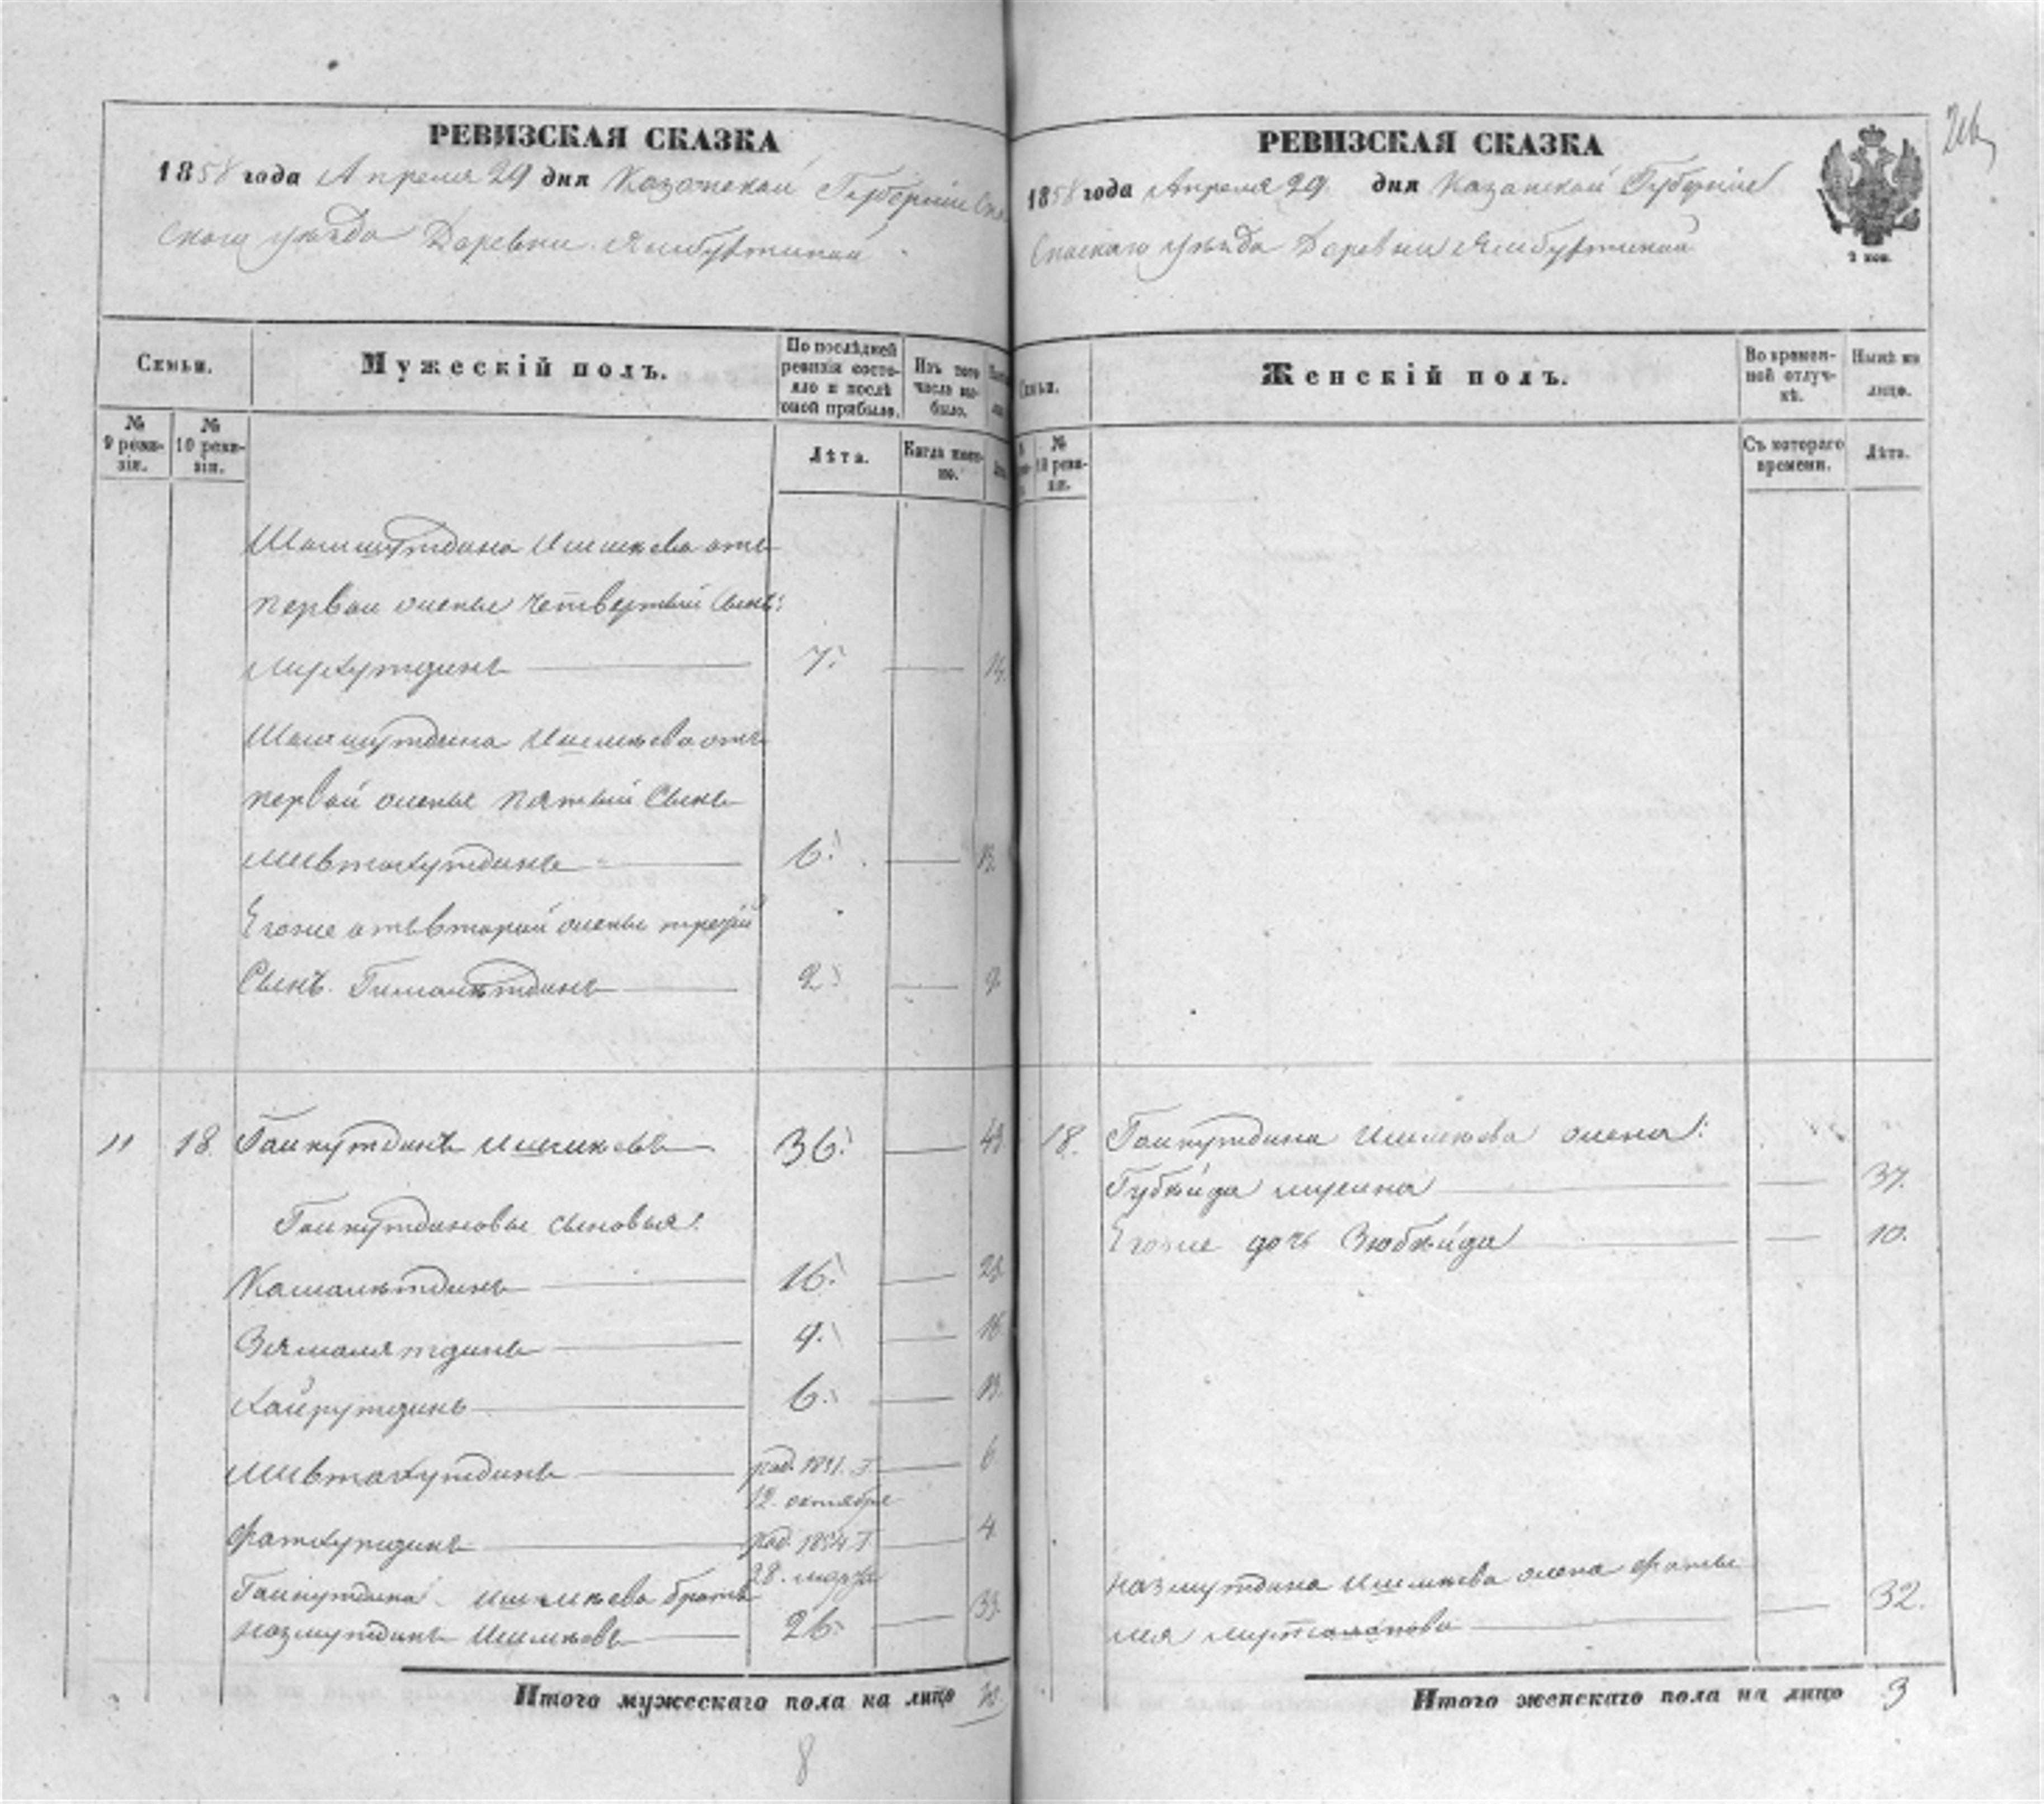 РЕВИЗСКАЯ СКАЗКА
1858 года Апреля 29 дня Казанской Губернiи Спа
скаго уѣзда Деревни Ямбухтиной
Семьи.
Мужескiй полъ.
По послѣдней ревизiи состояло и послѣ оной прибыло.
Изъ того числа выбыло.
№ 9 ревизiи.
№ 10 ревизiи.
Лѣта.
Когда именно.
Шамшутдина Ишимкева отъ
первой жены четвертый сынъ:
7.
Шамшутдина Ишимкева отъ
первой жены пятый сынъ
Мивтахутдинъ 6. 13.
Егоже отъ второй жены третiй
Сынъ Гималѣтдинъ 2. 9.
11 18. Гайнутдинъ Ишимкевъ 36. 43
Гайнутдиновы сыновья:
Камалѣтдинъ 16. 23.
Зямалятдинъ 9. 16
Хайрутдинъ 6. 13.
Мивтахутдинъ род. 1851. г. 6
12. октября
Фатхутдинъ род. 1854 г. 4
28. марта
Гайнутдина Ишимкева братъ
Назмутдинъ Ишимкевъ 26. 33.
Итого мужескаго пола на лицо 10
8
РЕВИЗСКАЯ СКАЗКА
1858 года Апреля 29. дня Казанской Губернiи
Спаскаго уѣзда Деревни Ямбухтиной
2 коп.
Семьи.
Женскiй полъ.
Во временной отлучкѣ.
Нынѣ на лицо.
№ 10 ревизiи.
Съ котораго времени.
Лѣта.
18. Гайнутдина Ишимкева жена:
Губѣйда Мусина 37.
Егоже дочь Зюбѣйда 10.
Назмутдина Ишимкева жена Фаты
мя 32.
Итого женскаго пола на лицо 3